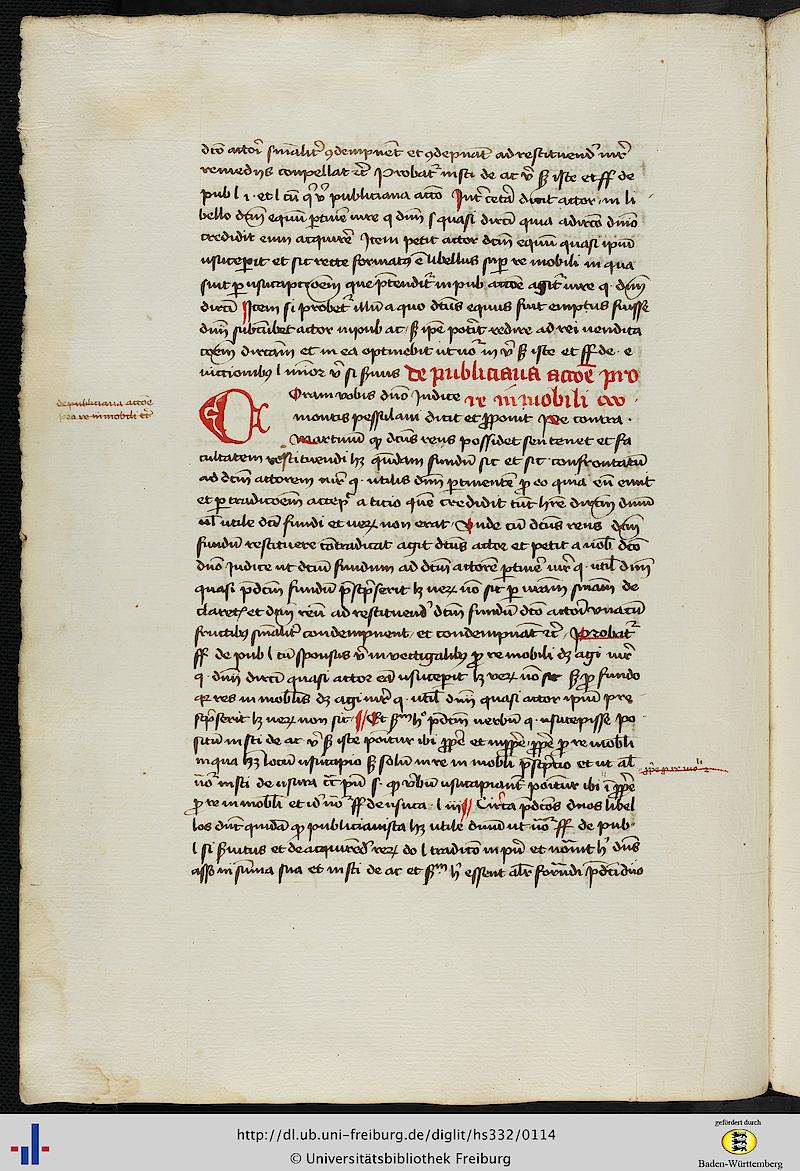 dcto actori sīnalit᷑ ꝯdempnet et ꝯdepnat ad restituend' iur᷑
remedijs conpellat etc Probat᷑ insti de ac iste et ff de
pub l i · et l cū publiciana actō Int᷑ cetā dicit actor in li
bello dcm̄ equū ptine iure q dnī quasi dirctī quia a dno
credidit eum acquirē Item petit actor dcm̄ equū quasi ipm̄
usuceperit et sit recte formatꝰ libellus sup re mobili in qua
sint ꝑ usucapcoēm que p̄tendit᷑ in pub actōe agit᷑ iure q · dnī
dirctī Item si probet᷑ illū a quo dcus equus fuit emptus fuisse
dnm̄ subcūbet actor in pub ac ipē potit redire ad rei uendica
coēm dirctam et in ea optinebit ut in iste et ff de · e
uictionibꝰ l minor si suus
de publiciana actōe pro
re in mobili
Coram uobis dnō Judice
montis pessulani dicit et ꝓponit Pe contra ·
Martinū ꝙ dcus reus possidet seu tenet et fa
cultatem restituendi hꝫ quendam fundū sit et sit · confrontatū
ad dcm̄ actorem iur᷑ q · utilis dnī ptinente ꝓ eo quia eū emit
et ꝑ tradicoēm accep a ticio quē credidit tūc hrē dirctm dnm̄
ul̄ utile dcī fundi et uerꝫ non erat · Unde cū dcus reus dcm̄
fundū restituere contradicat agit dcus actor et petit a uob̄ dcō
dnō Judice ut dcm̄ fundum ad dcm̄ actorē ptine iur᷑ q · util dnī
quasi p̄dcm̄ fundū p̄scpserit hꝫ uerꝫ nō sit ꝑ uram̄ sniam̄ de
claret et dcm̄ reū ad restituend' dcm̄ fundū dcō actori unacū
fructibꝰ sīnalit᷑ condempnent · et condempnat etc Probat᷑
ff de pub l cū sponsus in uectigalibꝰ ꝓ re mobili dꝫ agi iur᷑
q · dnī dirctī quasi actor eā usuceperit hꝫ uerꝫ nō sit ꝓ fundo
res in mobilis dꝫ agi iur᷑ q · util dnī quasi actor ipm̄ pre
scpserit hꝫ uerꝫ non sit · Et hꝰ p̄dcm̄ uerbū q · usucepisse po
situ insti de ac iste ponitur ibi ꝓpē et inꝓpē · ꝓpē ꝓ re mobili
in qua hꝫ locū usucapio solū in re in mobili p̄scpcio et ut al
insti de usuca pm̄ ꝙ ubū usucapiant᷑ ponitur ibi ꝓpē
ꝓ re in mobili et id ff de usuca · l Circa p̄dcōs duos libel
los dnt quidā ꝙ publicianista hꝫ utile dnm̄ ut ff de pub ·
l si seruitus et de acquirend' rerꝫ do l tradicio in pn̄ et dn̄s
asso in sum̄a sua et insti de ac et essent al̄r formādi p̄dcī duo
de publiciana actōe
pro re in mobili etc
ꝓpē ꝓ re
http://dl.ub.uni-freiburg.de/diglit/hs332/0114
© Universitätsbibliothek Freiburg
gefördert durch
Baden-Württemberg